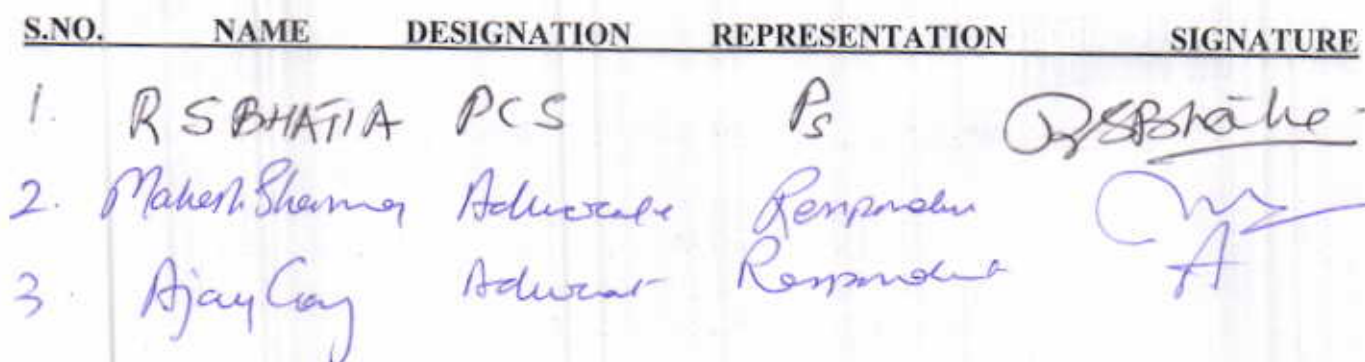 S.NO. NAME DESIGNATION REPRESENTATION SIGNATURE
1. R S BHATIA PCS Ps RSBhatia
2. Mahesh Sharma Advocate Respondent
3. Ajay Advocate Respondent A